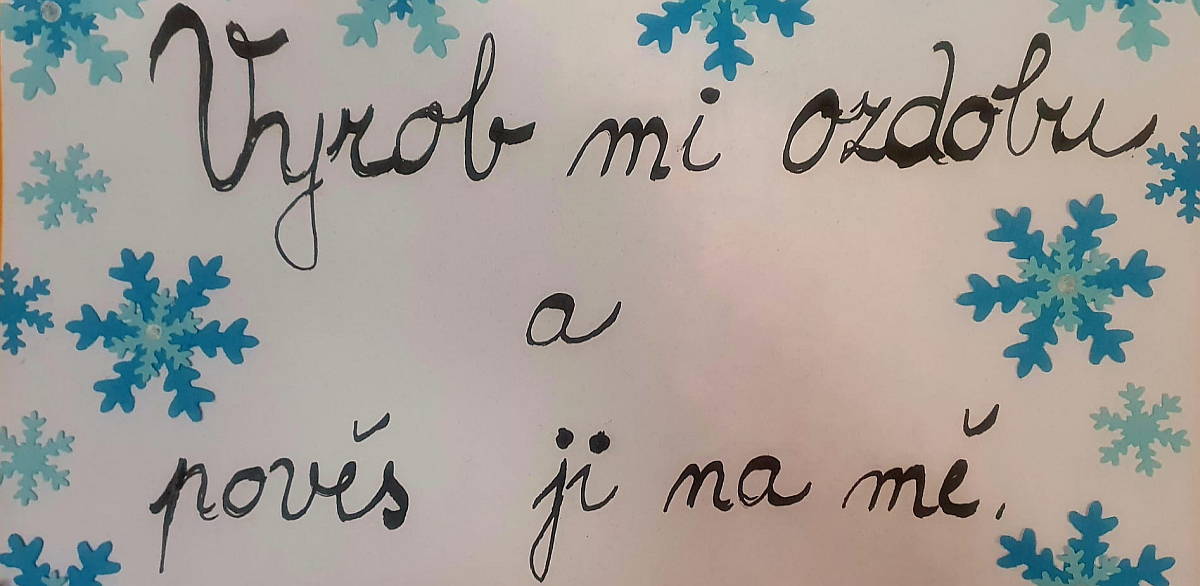 Vyrob mi ozdobu
a
pověs ji na mě.